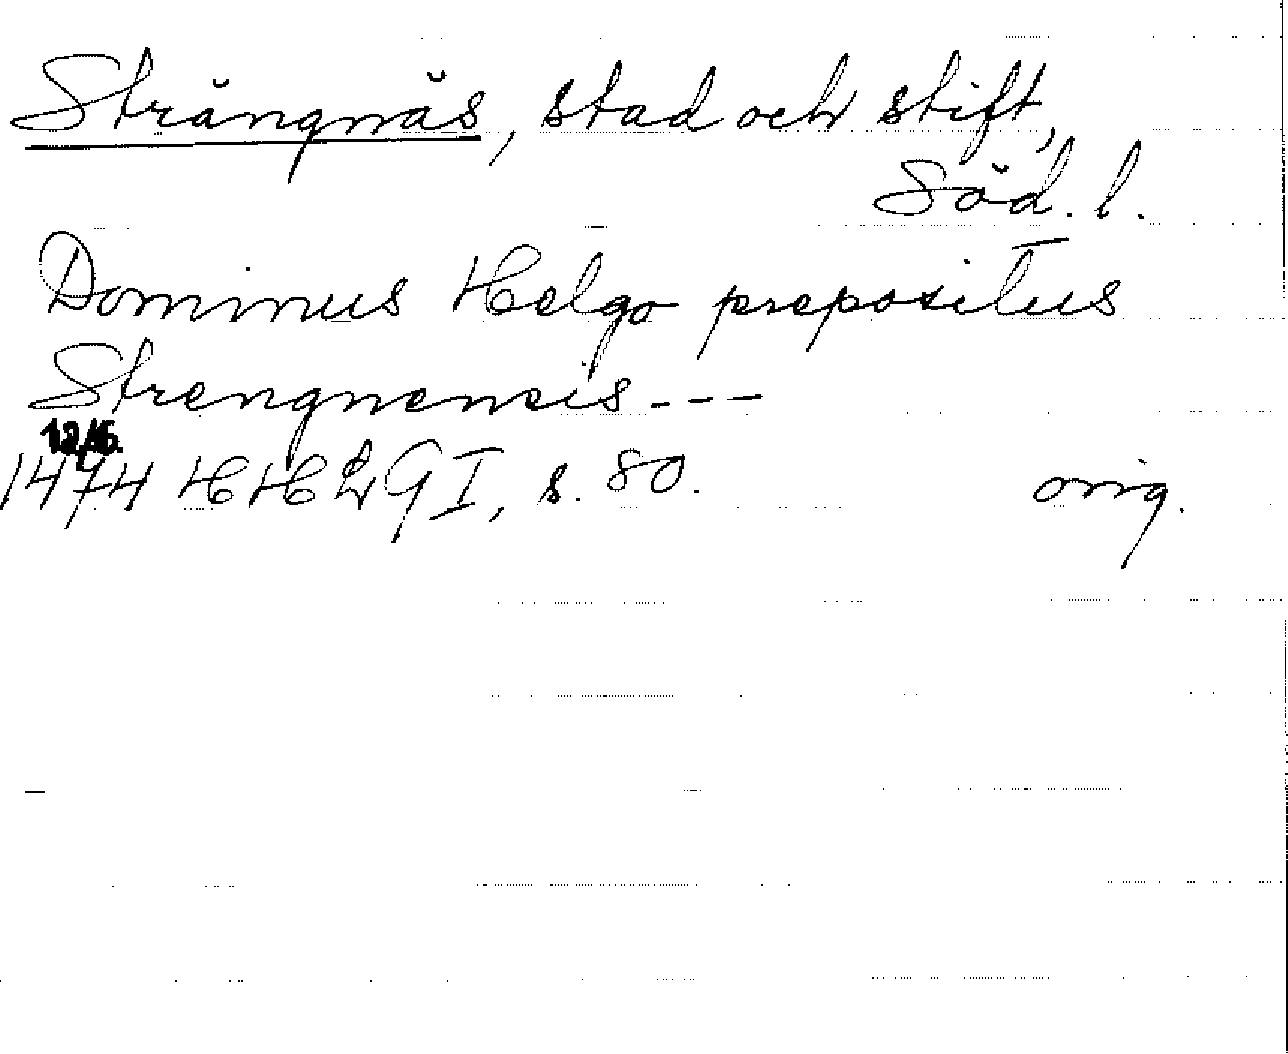 Strängnäs, stad och stift,
Söd. l.
Dominus Helgo prepositus
Strengnensis ---
12/6.
1474 HHLG I, s. 80. orig.